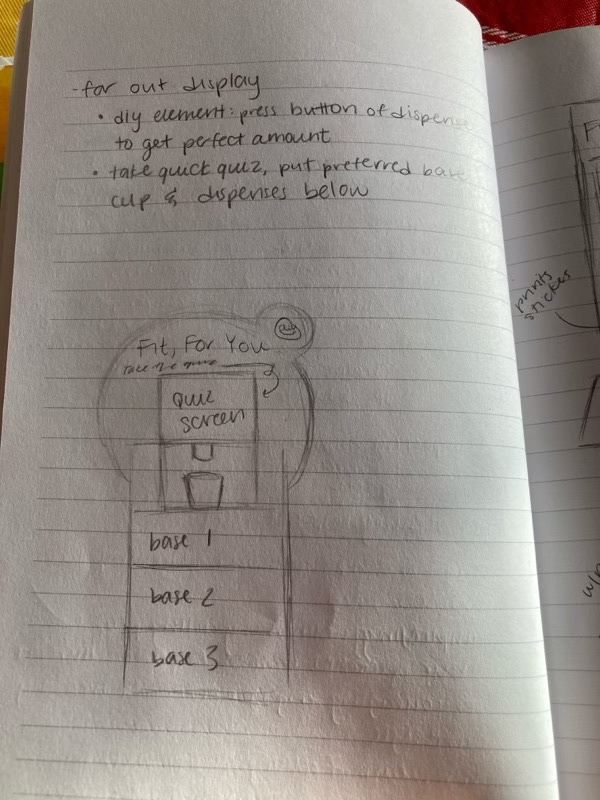 -for out display
• diy element: press button of dispense
to get perfect amount
• take quick quiz, put preferred base
cup & dispenses below
Fit, For You
take the quiz
quiz
screen
base 1
base 2
base 3
prints
sticker